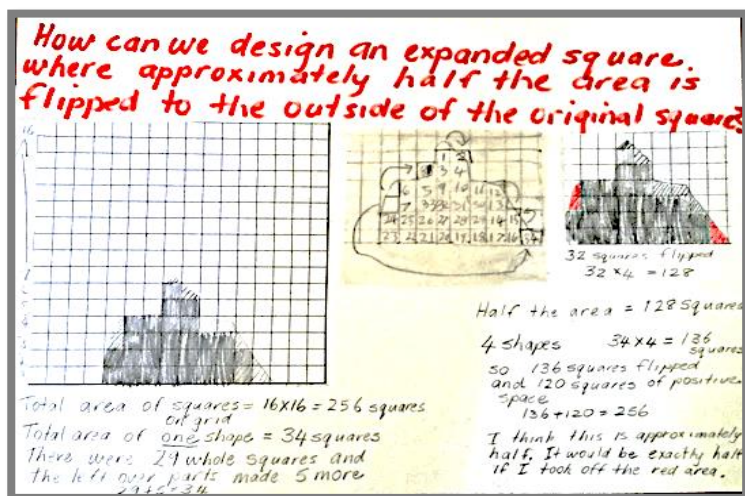 How can we design an expanded square
where approximately half the area is
flipped to the outside of the original square?
16
32 squares flipped
32 x 4 = 128
Half the area = 128 squares
4 shapes 34x4 = 136
squares
so 136 squares flipped
and 120 squares of positive
space
136+120 = 256
I think this is approximately
half. It would be exactly half
if I took off the red area.
Total area of squares = 16x16 = 256 squares
on grid
Total area of one shape = 34 squares
There were 29 whole squares and
the left over parts made 5 more
29+5=34